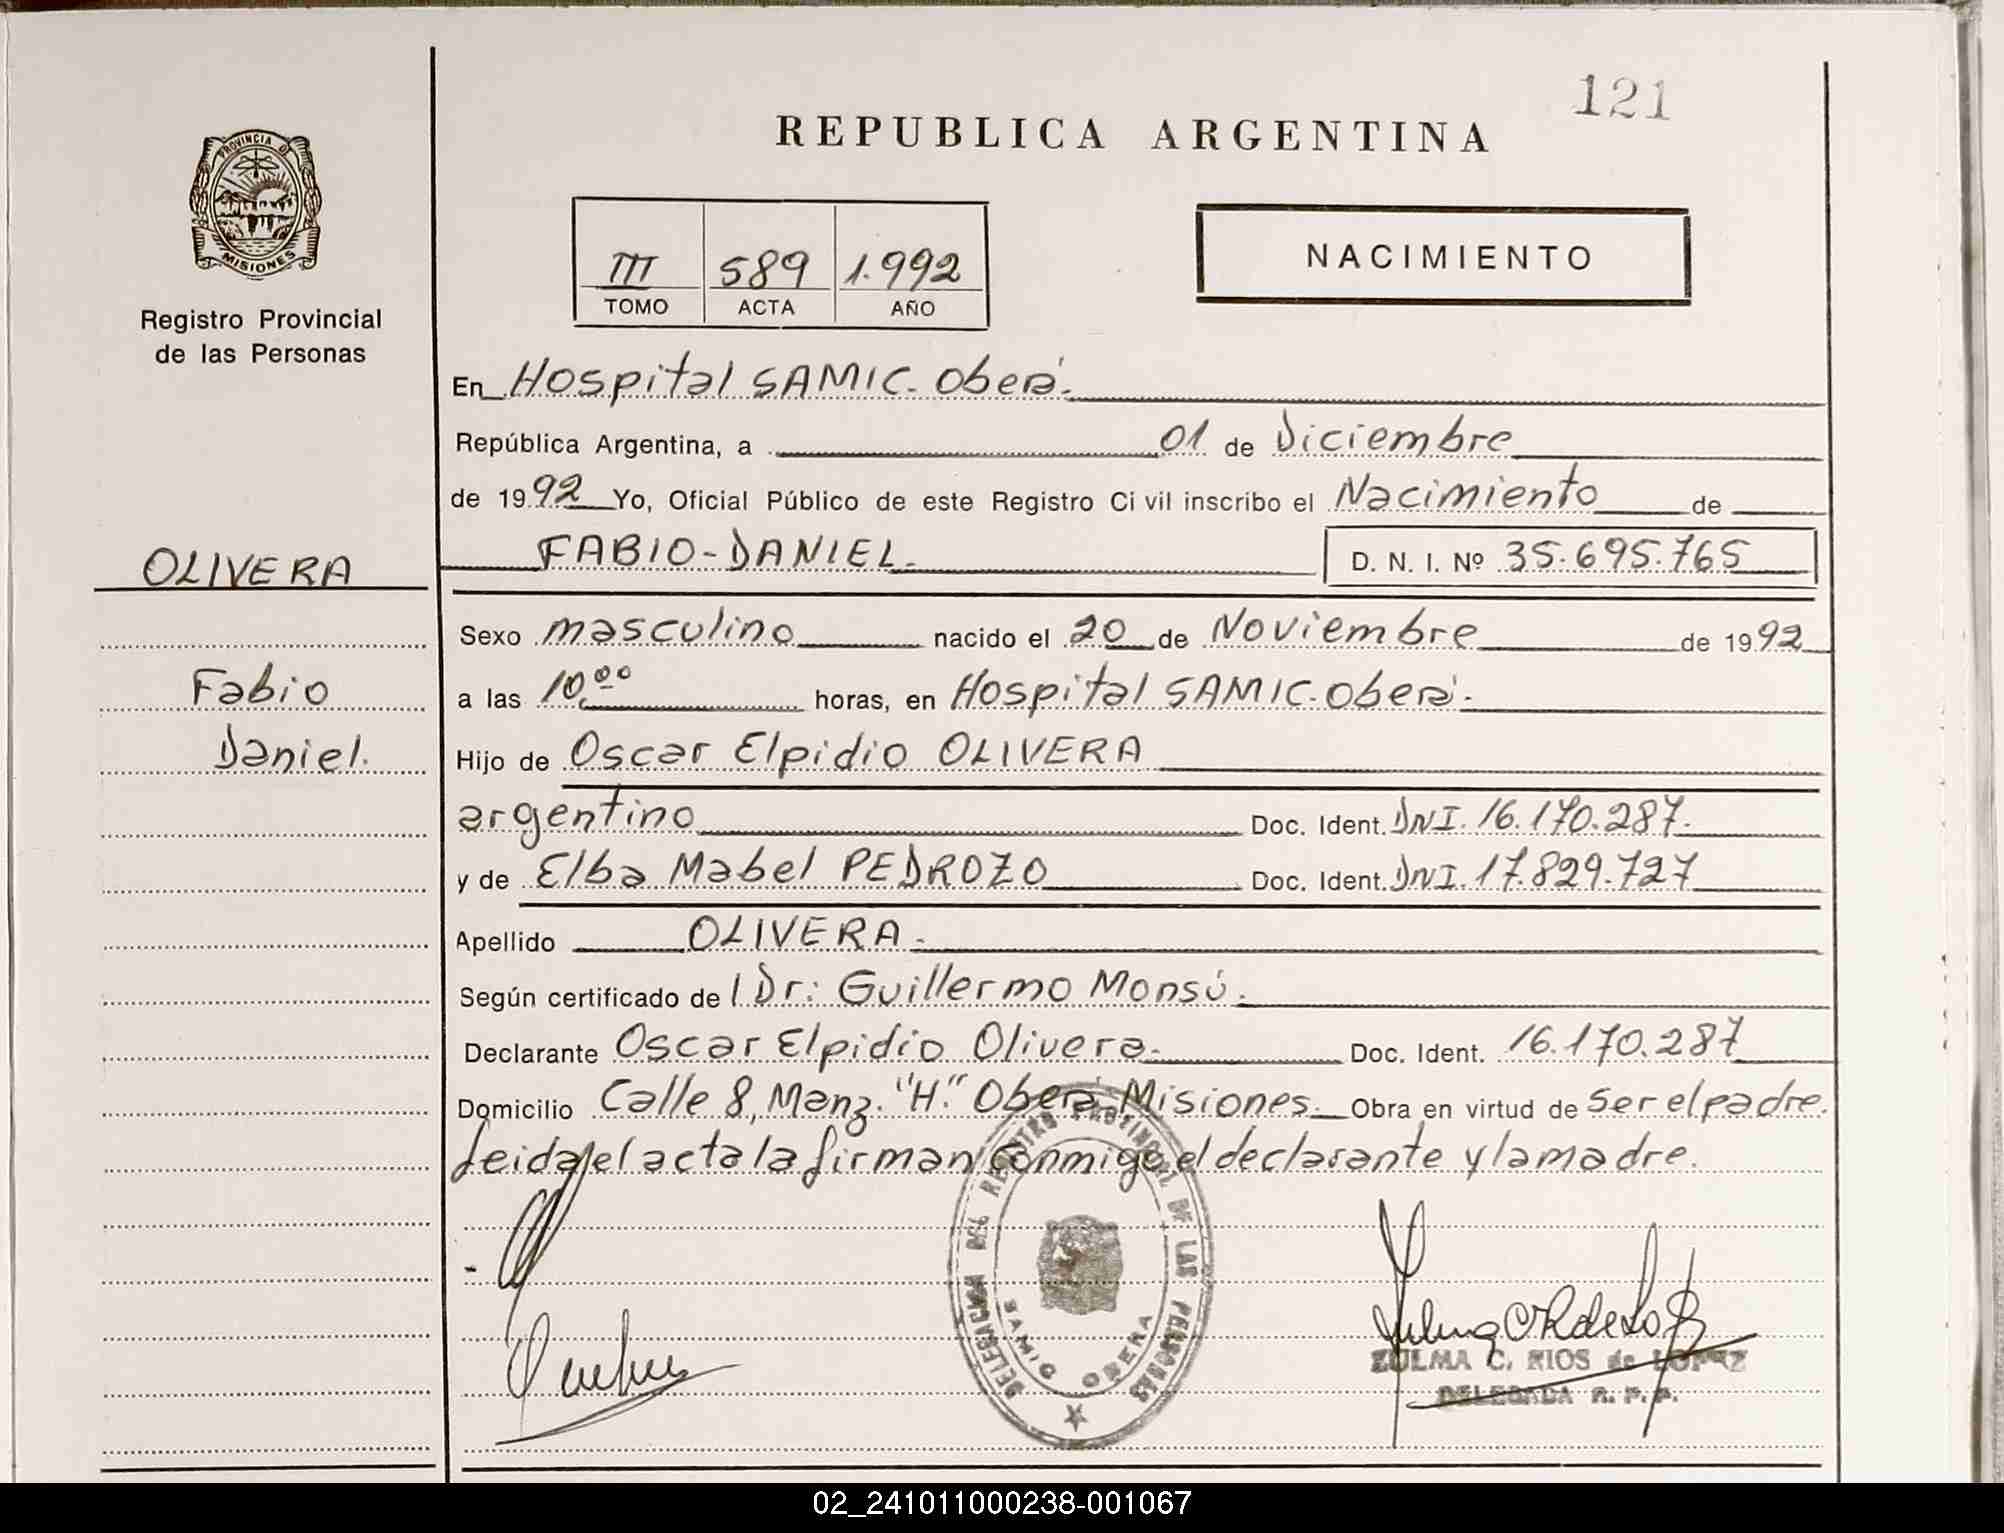 121
REPUBLICA ARGENTINA
PROVINCIA DE
MISIONES
Registro Provincial
de las Personas
III 589 1.992
TOMO ACTA AÑO
NACIMIENTO
En Hospital SAMIC. Oberá.
República Argentina, a 01 de Diciembre
de 1992 Yo, Oficial Público de este Registro Civil inscribo el Nacimiento de
OLIVERA
FABIO-DANIEL. D. N. I. Nº 35.695.765
Sexo masculino nacido el 20 de Noviembre de 1992
Fabio
a las 10,00 horas, en Hospital SAMIC. Oberá.
Daniel.
Hijo de Oscar Elpidio OLIVERA
argentino Doc. Ident. DNI. 16.170.287.
y de Elba Mabel PEDROZO Doc. Ident. DNI. 17.829.727
Apellido OLIVERA.
Según certificado de l Dr: Guillermo Monsú.
Declarante Oscar Elpidio Olivera. Doc. Ident. 16.170.287
Domicilio Calle 8, Manz. "H." Oberá Misiones. Obra en virtud de ser el padre.
Leida el acta la firman conmigo el declarante y la madre.
DELEGACION DEL REGISTRO PROVINCIAL DE LAS PERSONAS
SAMIC OBERA
ZULMA C. RIOS de LOPEZ
DELEGADA R. P. P.
02_241011000238-001067